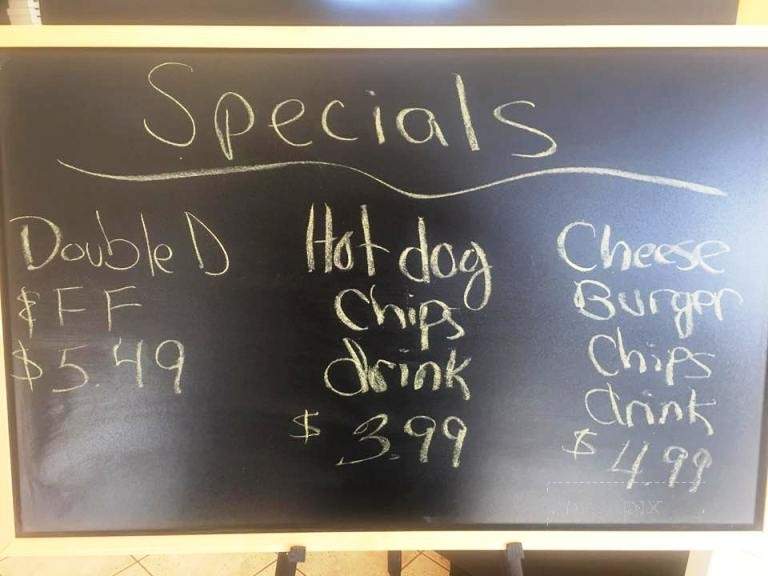 Specials
Double D
$ F F
$5.49
Hot dog
Chips
drink
$ 3.99
Cheese
Burger
Chips
drink
$ 4.99